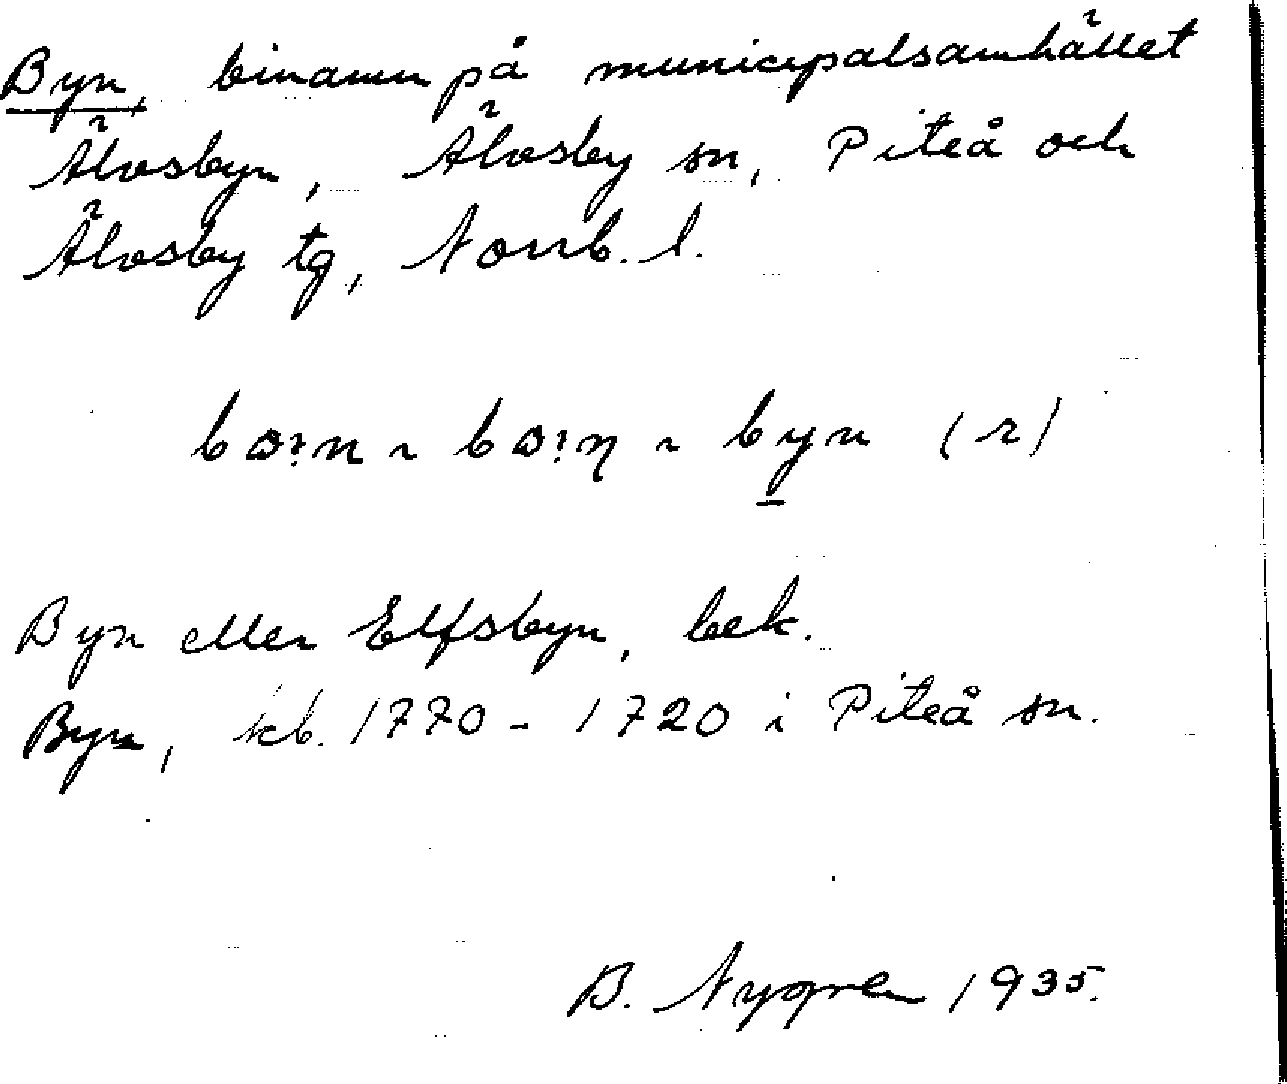 Byn, binamn på municipalsamhället
Älvsbyn, Älvsby sn, Piteå och
Älvsby tg, Norrb. l.
byn (r)
Byn eller Elfsbyn, bek.
Byn, kb. 1770 - 1720 i Piteå sn.
B. Nygren 1935.